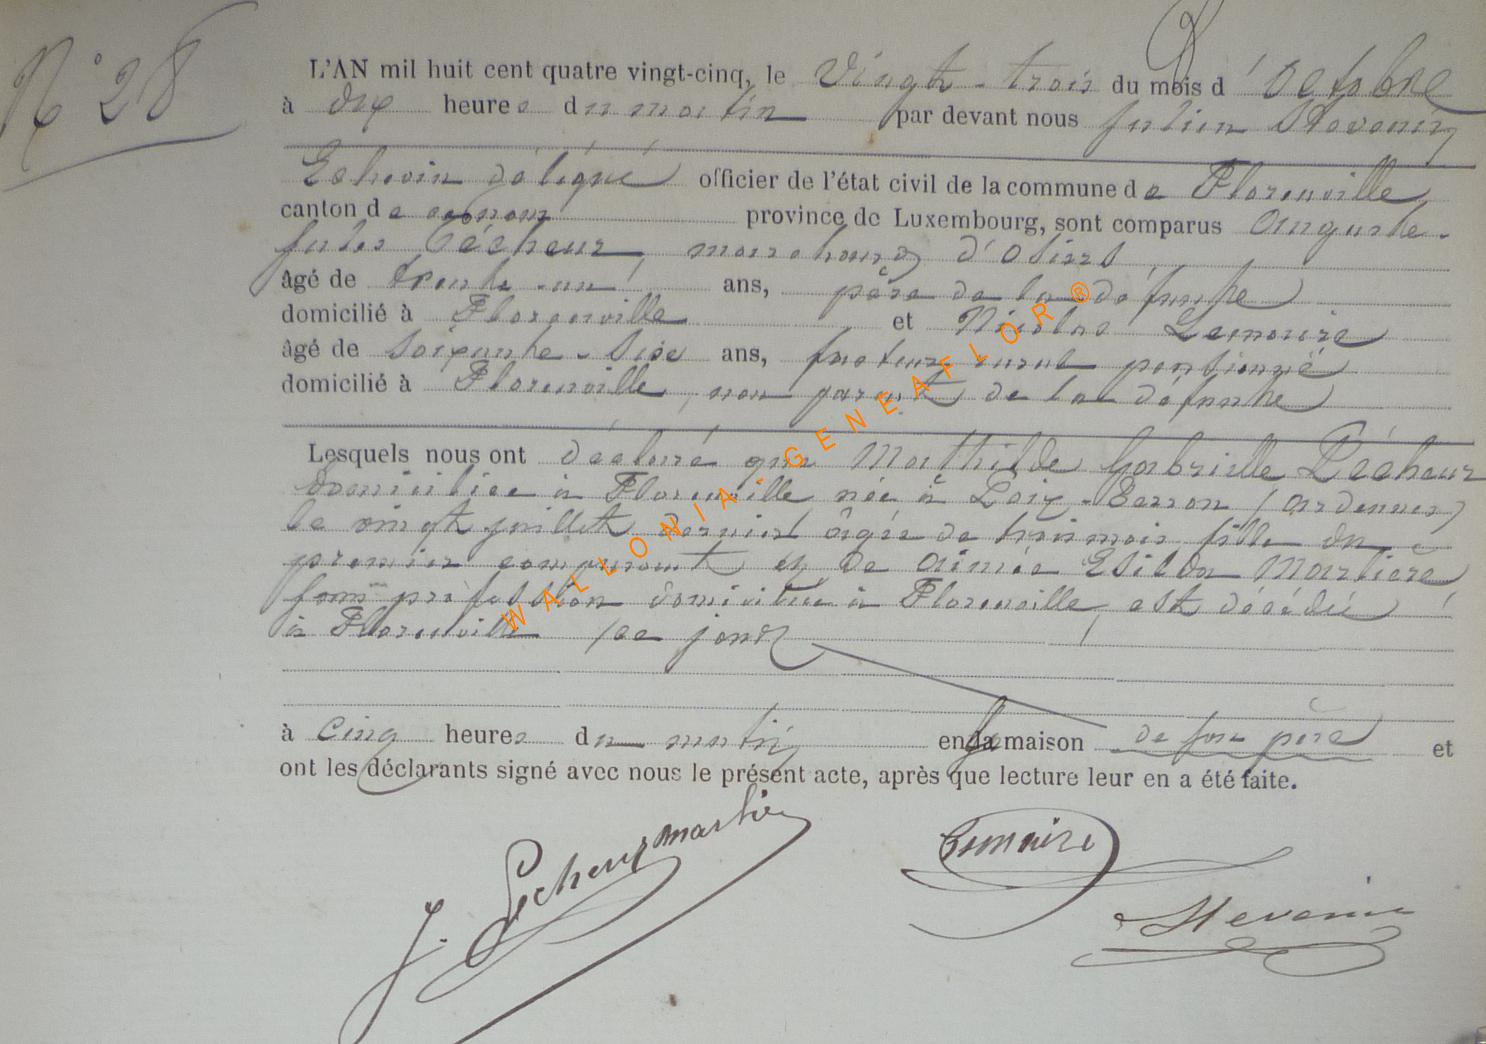 N° 28
L'AN mil huit cent quatre vingt-cinq, le Vingt-trois du mois d'Octobre
à dix heures du matin par devant nous Julien
Echevin délégué officier de l'état civil de la commune de Florenville
canton de province de Luxembourg, sont comparus Auguste-
Jules Pécheur, marchand d'osiers
âgé de trente-un ans, père de la défunte
domicilié à Florenville et Nicolas Lemaire
âgé de soixante-six ans, facteur rural pensionné
domicilié à Florenville, non parent de la défunte
Lesquels nous ont déclaré que Mathilde Gabrielle Pécheur
domiciliée à Florenville née à Poix-Terron (Ardennes)
le vingt juillet dernier âgée de trois mois fille du
premier comparant et de Aimée
sans profession domiciliée à Florenville, est décédée
à Florenville ce jour
à cinq heures du matin en la maison de son père et
ont les déclarants signé avec nous le présent acte, après que lecture leur en a été faite.
J. Pecheur
Lemaire
WALLONIA-GENEAFLOR ®